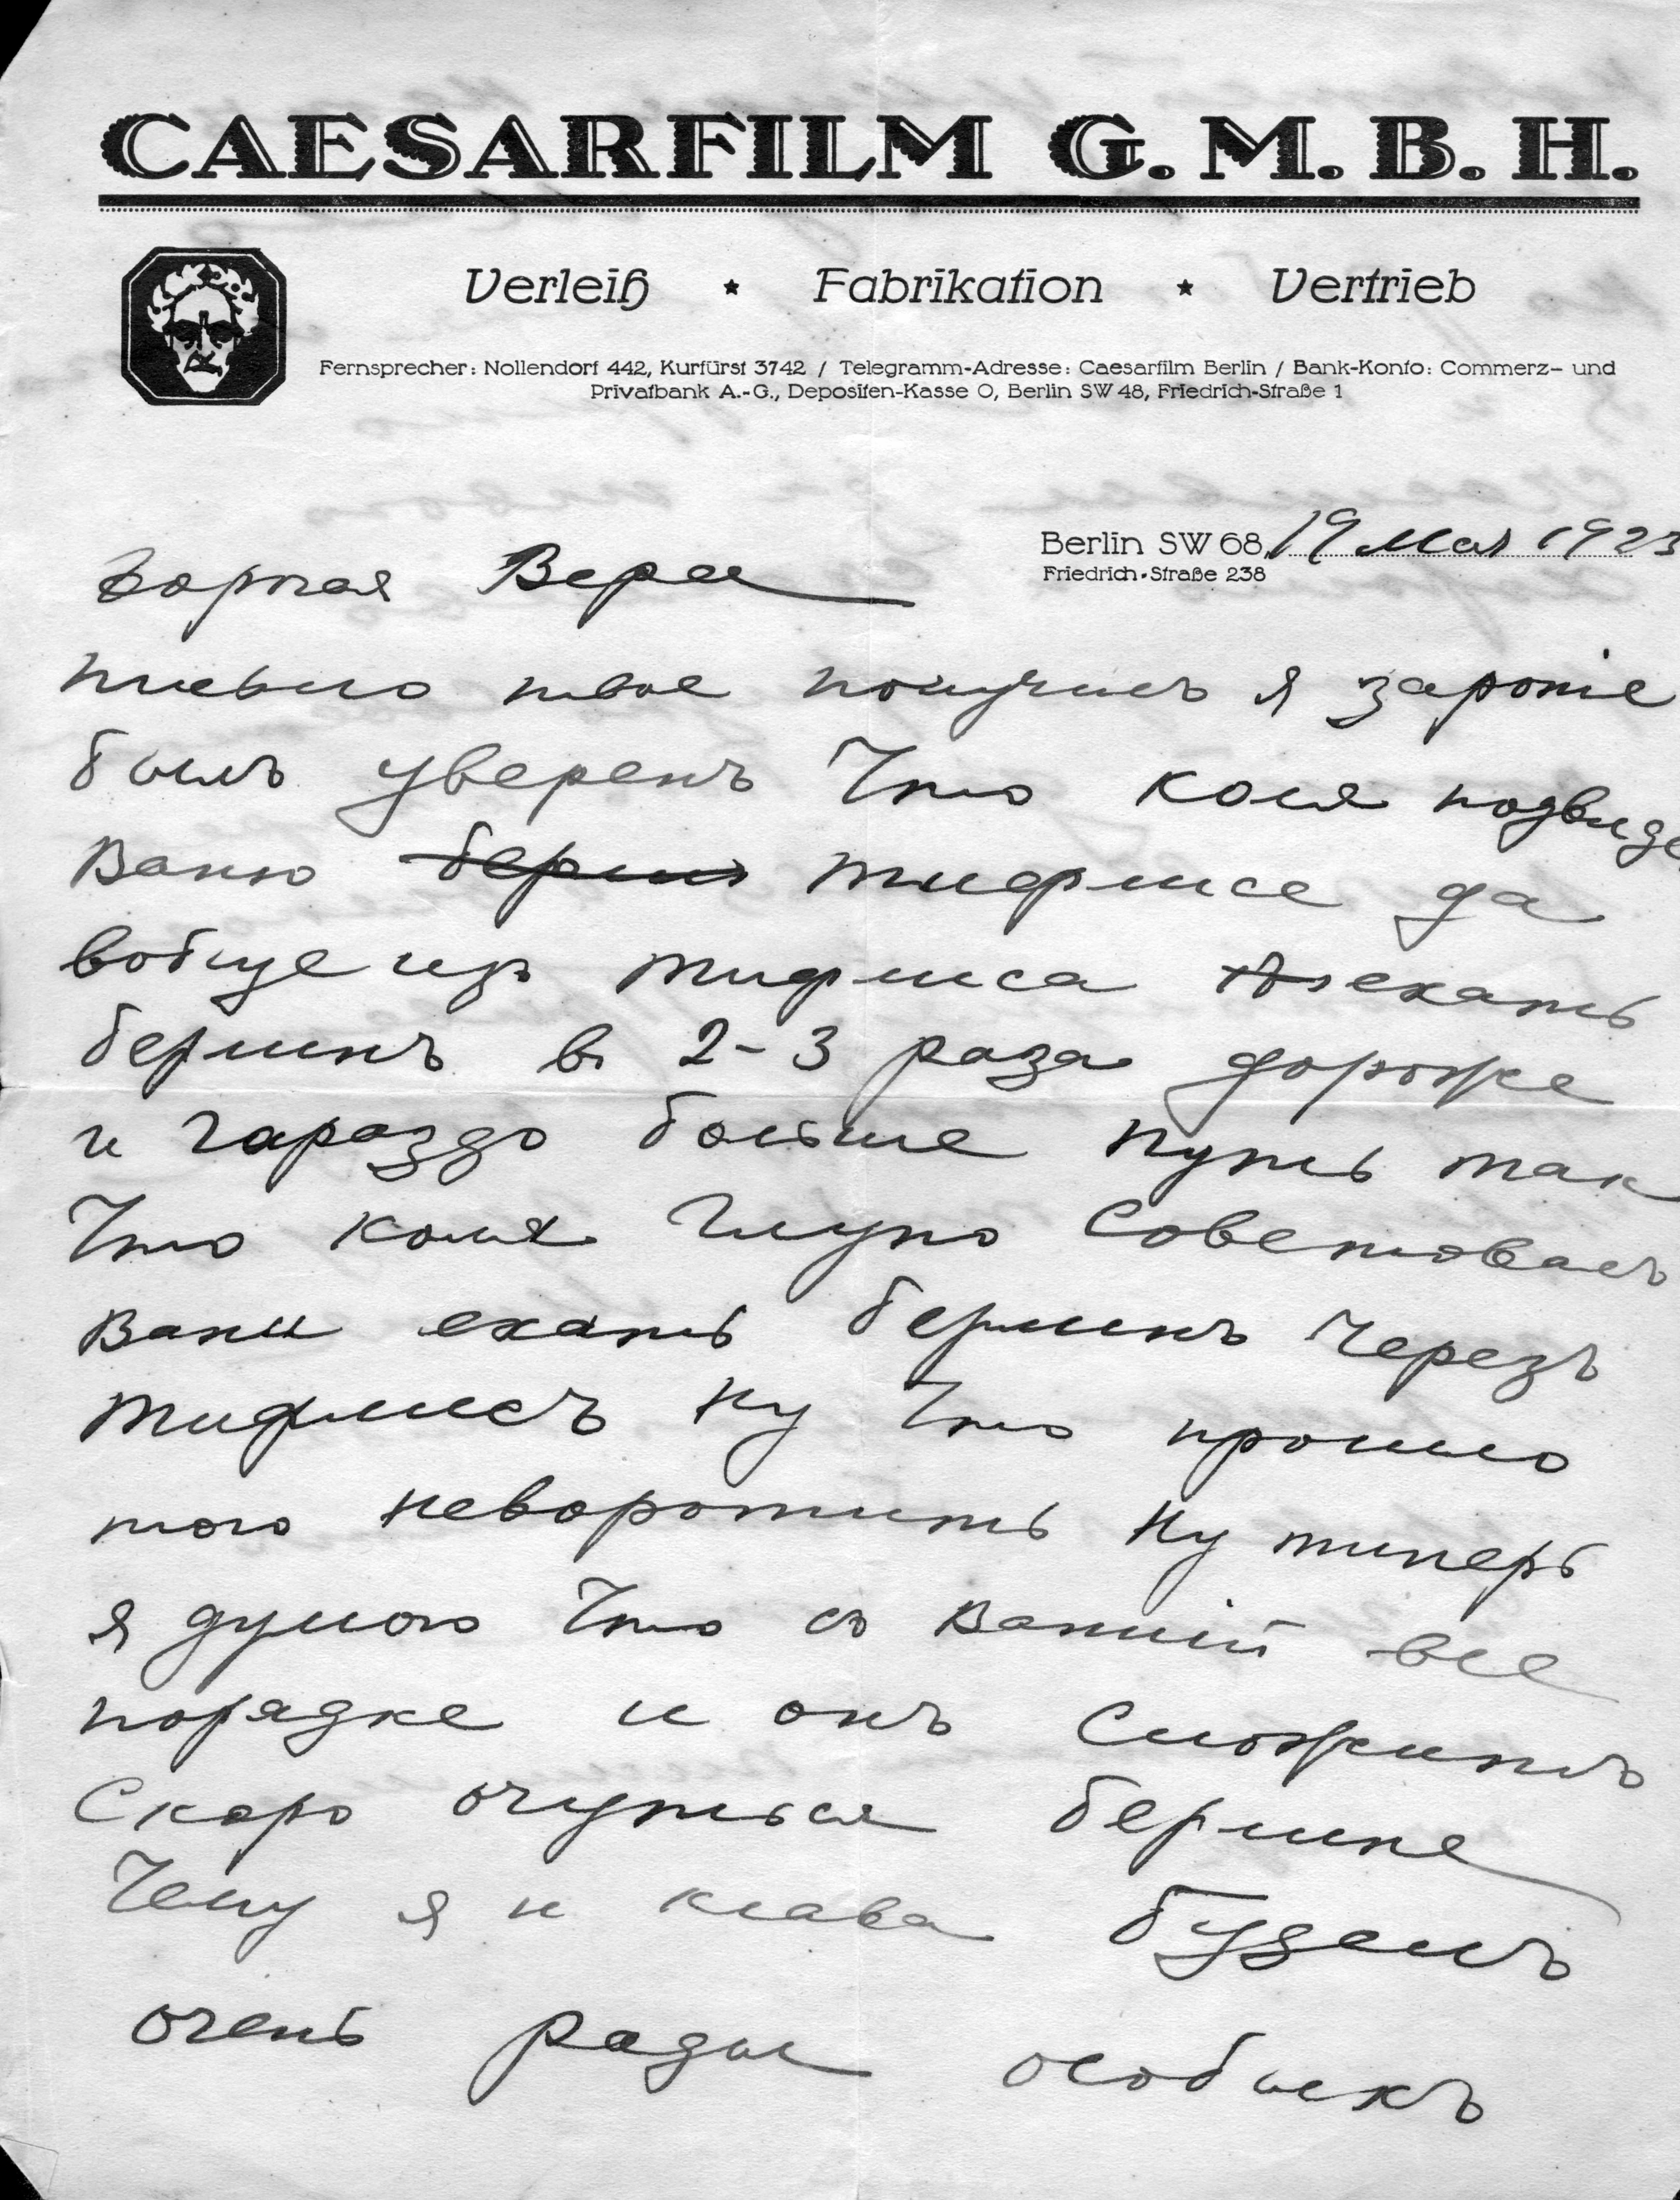 CAESARFILM G.M.B.H.
Verleih * Fabrikation * Vertrieb
Fernsprecher: Nollendorf 442, Kurfürst 3742 / Telegramm-Adresse: Caesarfilm Berlin / Bank-Konto: Commerz- und
Privatbank A.-G., Depositen-Kasse O, Berlin SW 48, Friedrich-Straße 1
Berlin SW 68, 19 Мая 1923
Friedrich-Straße 238
Вера
письмо твое получилъ я
былъ уверенъ Что коля
Ваню тифлисе да
вобще изъ тифлиса ехать
берлинъ в 2-3 раза дороже
и гараздо больше путь так
Что коля глупо Советовалъ
Вани ехать берлинъ Черезъ
тифлисъ ну Что прошло
того неворотить ну типерь
я думаю Что съ Ванiй все
порядке и онъ Сможитъ
Скоро очуться берлине
Чему я и клава будемъ
очень рады